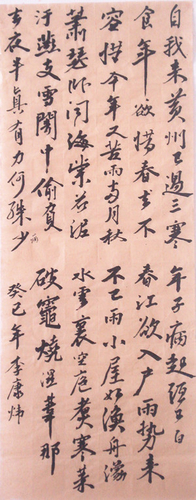 自我来黄州已過三寒
食年〻欲惜春春去不
容惜今年又苦雨两月秋
蕭瑟卧闻海棠花泥
汙燕支雪闇中偷負
去夜半真有力何殊少
病
年子病起頭已白
春江欲入户雨势来
不已雨小屋如渔舟濛〻
水雲裏空庖煮寒菜
破竈燒濕葦那
癸巳年李康炜